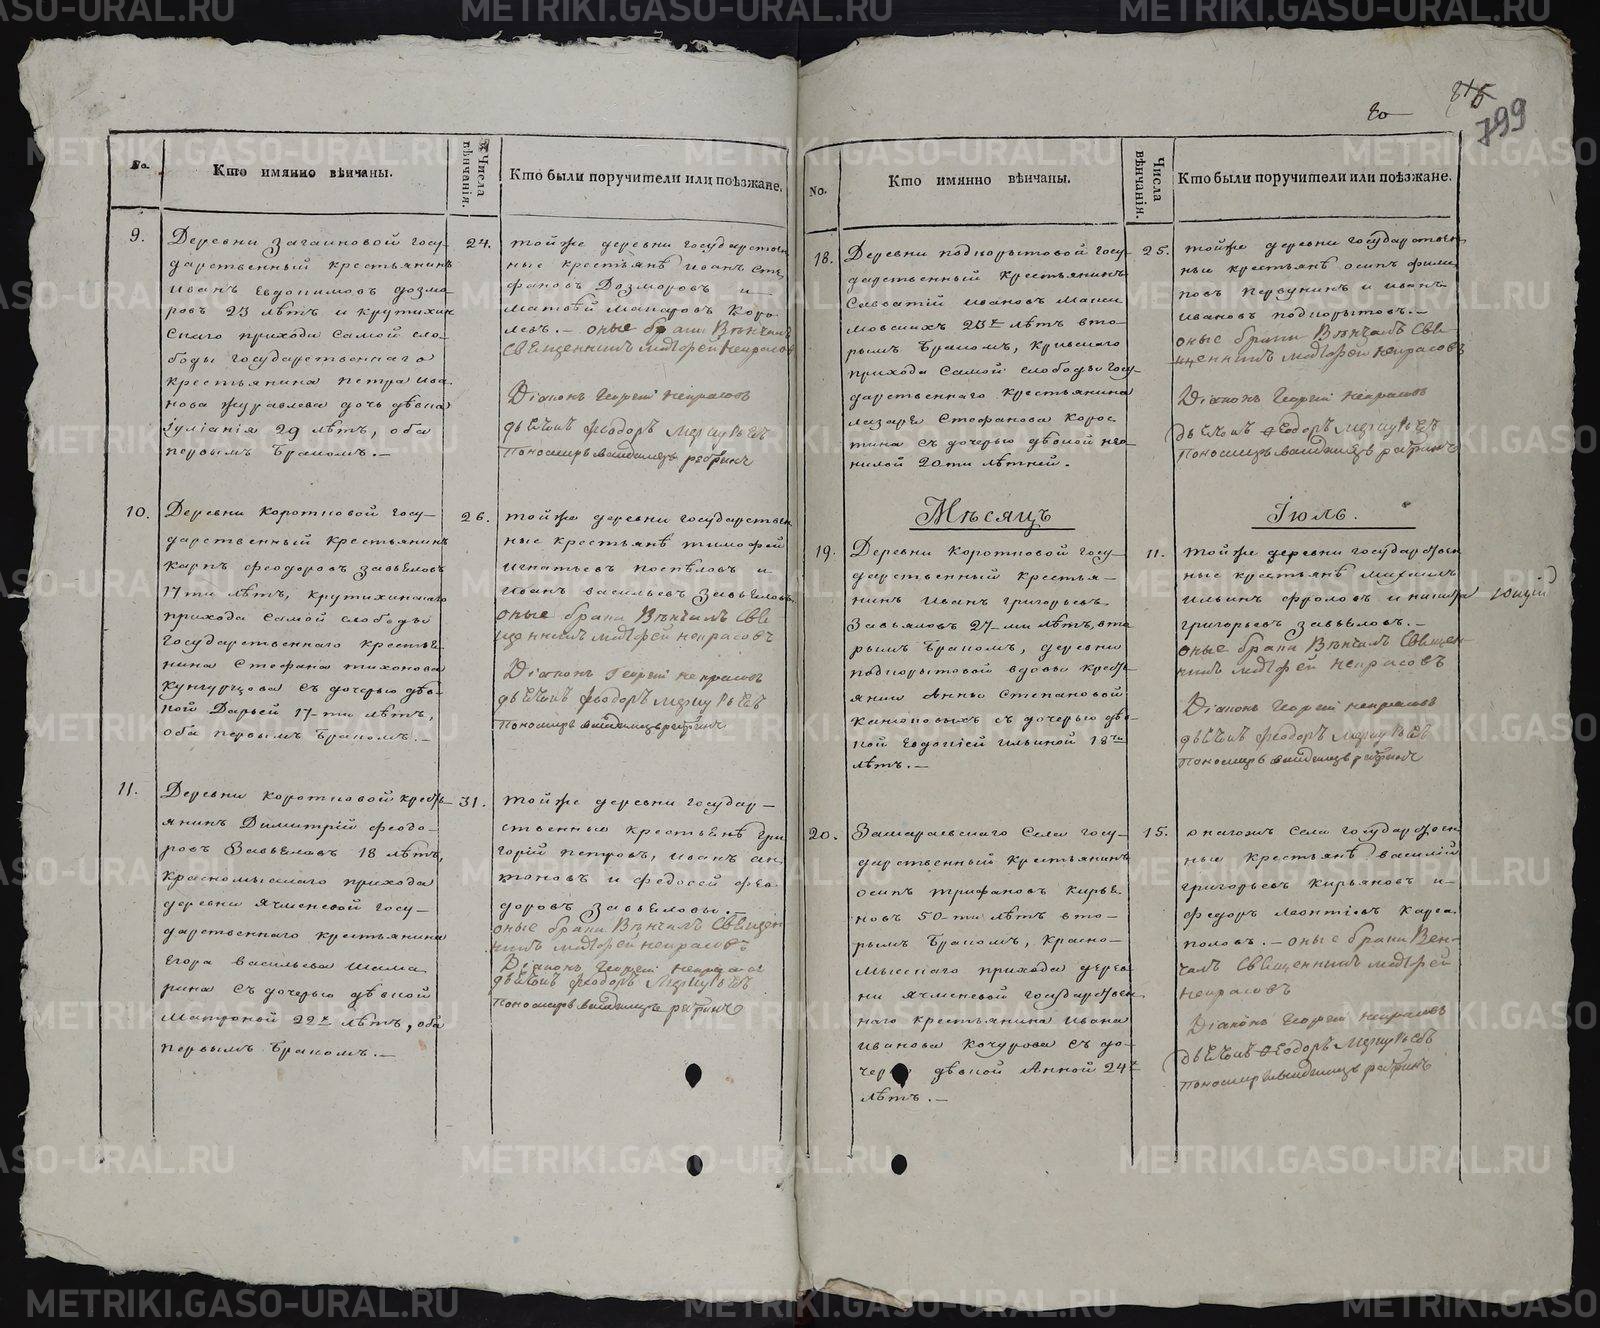 80
799
No.
Кто имянно вѣнчаны.
Числа вѣнчанія.
Кто были поручители или поѣзжане.
9.
Деревни Загаиновой госу-
дарственный крестьянинъ
Иванъ Евдокимовъ Дозмо-
ровъ 23 лѣтъ и Крутихин
скаго прихода самой сло-
боды государственнаго
крестьянина Петра Ива
нова Журавлева дочь дѣвка
Іуліанія 29 лѣтъ, оба
первымъ бракомъ.—
24.
тойже деревни государствен
ные крестьянѣ Иванъ Сте
фановъ Дозморовъ и
Матвѣй Макаровъ Коро
левъ.— оные браки Вѣнчалъ
Священникъ Матфей Некрасовъ
Діаконъ Георгій Некрасовъ
дьячокъ Феодоръ Меркурьевъ
10.
Деревни Коротковой госу—
дарственный крестьянинъ
Карпъ Феодоровъ Завьяловъ
17ти лѣтъ, Крутихинскаго
прихода самой слободы
государственнаго крестья-
нина Стефана Тихонова
Кунгурцова съ дочерью дѣв-
кой Дарьей 17-ти лѣтъ,
оба первымъ бракомъ.—
26.
тойже деревни государствен
ные крестьянѣ Тимофей
Игнатьевъ Поспѣловъ и
Иванъ Васильевъ Завьяловъ
оные браки Вѣнчалъ Свя-
щенникъ Матфей Некрасовъ
Діаконъ Георгій Некрасовъ
дьячокъ Феодоръ Меркурьевъ
11.
Деревни Коротковой кресть-
янинъ Димитрій Феодо-
ровъ Завьяловъ 18 лѣтъ,
Красномысскаго прихода
деревни Ячменевой госу—
дарственнаго крестьянина
Егора Васильева Шама
рина съ дочерью дѣвкой
Матроной 22хъ лѣтъ, оба
первымъ бракомъ.—
31.
тойже деревни государ—
ственные крестьянѣ Гри
горій Петровъ, Иванъ Ан
тоновъ и Федосей Фео
доровъ Завьяловы.—
оные браки Вѣнчалъ Священ
никъ Матфей Некрасовъ
Діаконъ Георгій Некрасовъ
дьячокъ Феодоръ Меркурьевъ
No.
Кто имянно вѣнчаны.
Числа вѣнчанія.
Кто были поручители или поѣзжане.
18.
Деревни Подкорытовой госу-
дарственный крестьянинъ
Савватій Ивановъ Макси
мовскихъ 23хъ лѣтъ вто-
рымъ бракомъ, Кривскаго
прихода самой слободы госу-
дарственнаго крестьянина
Лазаря Стефанова Корос
тина съ дочерью дѣвкой Нео
нилой 20ти лѣтней.
25.
тойже деревни государствен
ные крестьянѣ Осипъ Фили
повъ Первунинъ и Иванъ
Ивановъ Подкорытовъ.—
оные браки Вѣнчалъ Свя-
щенникъ Матфей Некрасовъ
Діаконъ Георгій Некрасовъ
дьячокъ Феодоръ Меркурьевъ
Мѣсяцъ
Іюль.
19.
Деревни Коротковой госу—
дарственный крестья—
нинъ Иванъ Григорьевъ
Завьяловъ 27-ми лѣтъ, вто
рымъ бракомъ, деревни
Подкорытовой вдовы кресть-
янки Анны Степановой
Каноповыхъ съ дочерью дѣв-
кой Евдокіей Ильиной 18ти
лѣтъ.—
11.
тойже деревни государствен
ные крестьянѣ Михаилъ
Ильинъ Фроловъ и Никита
Григорьевъ Завьяловъ.—
оные браки Вѣнчалъ Священ-
никъ Матфей Некрасовъ
Діаконъ Георгій Некрасовъ
дьячокъ Феодоръ Меркурьевъ
20.
Замараевскаго села госу—
дарственный крестьянинъ
Осипъ Трифановъ Кирья-
новъ 50-ти лѣтъ вто—
рымъ бракомъ, Красно—
мысскаго прихода дерев
ни Ячменевой государствен
наго крестьянина Ивана
Иванова Кочурова съ до-
черью дѣвкой Анной 24хъ
лѣтъ.—
15.
онагожъ села государствен
ные крестьянѣ Василій
Григорьевъ Кирьяновъ и—
Федоръ Леонтіевъ Карга
половъ.— оные браки Вен-
чалъ Священникъ Матфей
Некрасовъ
Діаконъ Георгій Некрасовъ
дьячокъ Феодоръ Меркурьевъ
METRIKI.GASO-URAL.RU